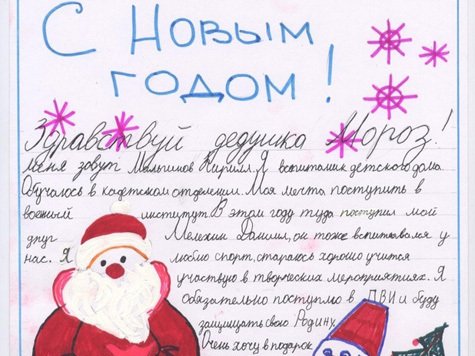 С Новым
годом!
Здравствуй дедушка Мороз!
Меня зовут Мельников Кирилл. Я воспитаник детского дома
Обучаюсь в кадетском отделении. Моя мечта, поступить в
военный институт. В этом году туда поступил мой
друг Мелехин Даниил, он тоже вспитывался у
нас. Я люблю спорт, стараюсь хорошо учится
участвую в творческих мероприятиях. Я
обязательно поступлю в ПВИ и буду
защищать свою Родину.
Очень хочу в подарок